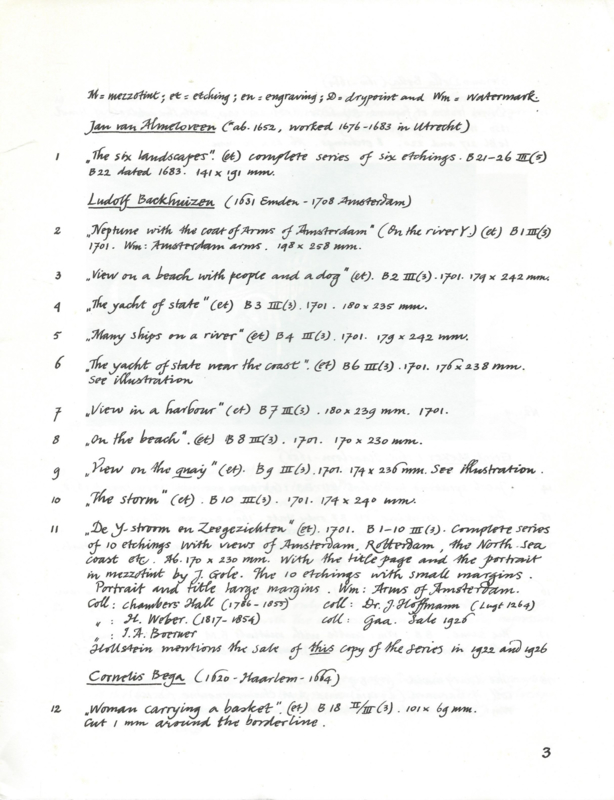 M = mezzotint; et = etching; en = engraving; D = drypoint and Wm = Watermark.
Jan van Almeloveen (*ab. 1652, worked 1676-1683 in Utrecht)
1 „The six landscapes". (et) complete series of six etchings. B21-26 III(5)
B22 dated 1683. 141 x 191 mm.
Ludolf Backhuizen (1631 Emden - 1708 Amsterdam)
2 „Neptune with the coat of Arms of Amsterdam" (On the river Y.) (et) B1 III(3)
1701. Wm: Amsterdam arms. 198 x 258 mm.
3 „View on a beach with people and a dog" (et). B2 III(3). 1701. 179 x 242 mm.
4 „The yacht of state" (et) B3 III(3). 1701. 180 x 235 mm.
5 „Many ships on a river" (et) B4 III(3). 1701. 179 x 242 mm.
6 „The yacht of state near the coast". (et) B6 III(3). 1701. 176 x 238 mm.
See illustration
7 „View in a harbour" (et) B7 III(3). 180 x 239 mm. 1701.
8 „On the beach". (et) B8 III(3). 1701. 170 x 230 mm.
9 „View on the quay" (et). B9 III(3). 1701. 174 x 236 mm. See illustration.
10 „The storm" (et). B10 III(3). 1701. 174 x 240 mm.
11 „De Y-stroom en Zeegezichten" (et). 1701. B1-10 III(3). Complete series
of 10 etchings with views of Amsterdam, Rotterdam, the North Sea
coast etc. Ab. 170 x 230 mm. With the title page and the portrait
in mezzotint by J. Gole. The 10 etchings with small margins.
Portrait and title large margins. Wm: Arms of Amsterdam.
Coll: Chambers Hall (1786-1855) coll: Dr. J. Hoffmann (Lugt 1264)
„ : H. Weber. (1817-1854) coll: Gaa. Sale 1926
„ : J.A. Boerner
Hollstein mentions the sale of this copy of the series in 1922 and 1926
Cornelis Bega (1620-Haarlem-1664)
12 „Woman carrying a basket". (et) B18 II/III(3). 101 x 69 mm.
Cut 1 mm around the borderline.
3